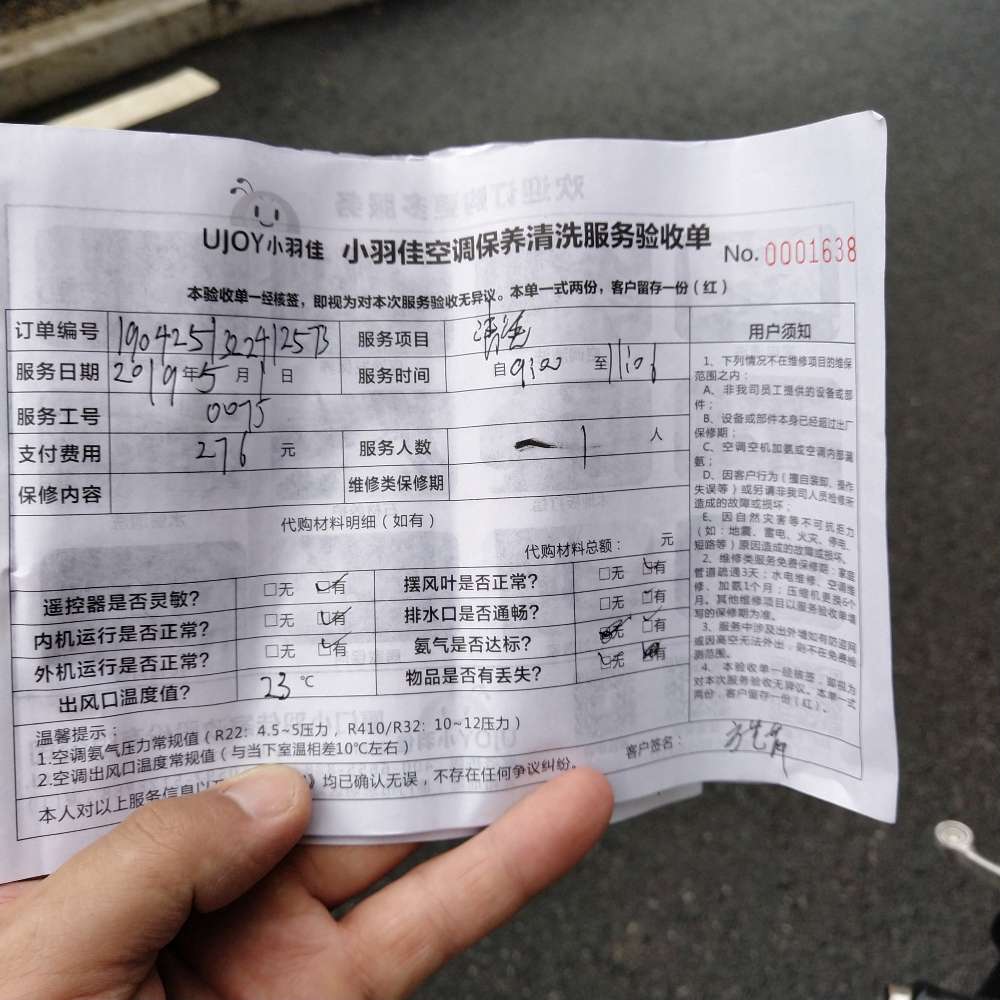 欢迎订购更多服务
UJOY小羽佳 小羽佳空调保养清洗服务验收单 No. 0001638
本验收单一经核签，即视为对本次服务验收无异议。本单一式两份，客户留存一份（红）
订单编号 服务项目 清洗
服务日期 2019年5月1日 服务时间 自9:00至11:06
服务工号 0075
支付费用 276 元 服务人数 一 1 人
保修内容 维修类保修期
代购材料明细（如有）
代购材料总额： 元
遥控器是否灵敏? □无 □有 摆风叶是否正常? □无 □有
内机运行是否正常? □无 □有 排水口是否通畅? □无 □有
外机运行是否正常? □无 □有 氨气是否达标? □无 □有
出风口温度值? 23 ℃ 物品是否有丢失? □无 □有
温馨提示：
1.空调氨气压力常规值（R22: 4.5~5压力，R410/R32: 10~12压力）
2.空调出风口温度常规值（与当下室温相差10℃左右）
本人对以上服务信息以 》均已确认无误，不存在任何争议纠纷。
客户签名：
用户须知
1、下列情况不在维修项目的维保
范围之内：
A、非我司员工提供的设备或部
件；
B、设备或部件本身已经超过出厂
保修期；
C、空调空机加氨或空调内部漏
氨；
D、因客户行为（擅自装卸、操作
失误等）或另请非我司人员检修所
造成的故障或损坏；
E、因自然灾害等不可抗拒力
（如：地震、雷电、火灾、停电、
短路等）原因造成的故障或损坏。
2、维修类服务免费保修期：家庭
管道疏通3天；水电维修、空调维
修、加氨1个月；压缩机更换6个
月。其他维修项目以服务验收单填
写的保修期为准。
3、服务中涉及出外墙如有防盗网
或因高空无法外出，则不在免费检
测范围。
4、本验收单一经核签，即视为
对本次服务验收无异议。本单一式
两份，客户留存一份（红）。